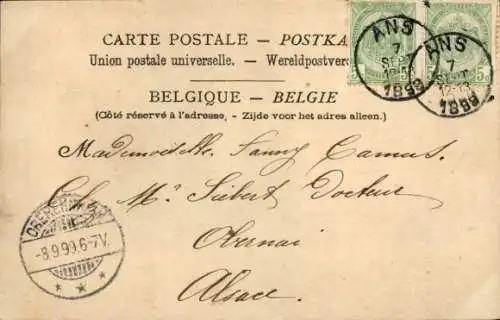 CARTE POSTALE – POSTKA
Union postale universelle. – Wereldpostver
BELGIQUE – BELGIE
(Côté réservé à l'adresse, – Zijde voor het adres alleen.)
ANS
7
SEPT
1899
ANS
7
SEPT
1899
5
5
Mademoiselle Fanny Camus
Ch. Mr. Siebert Docteur
Obernai
Alsace.
-8.9.99.6-7V.